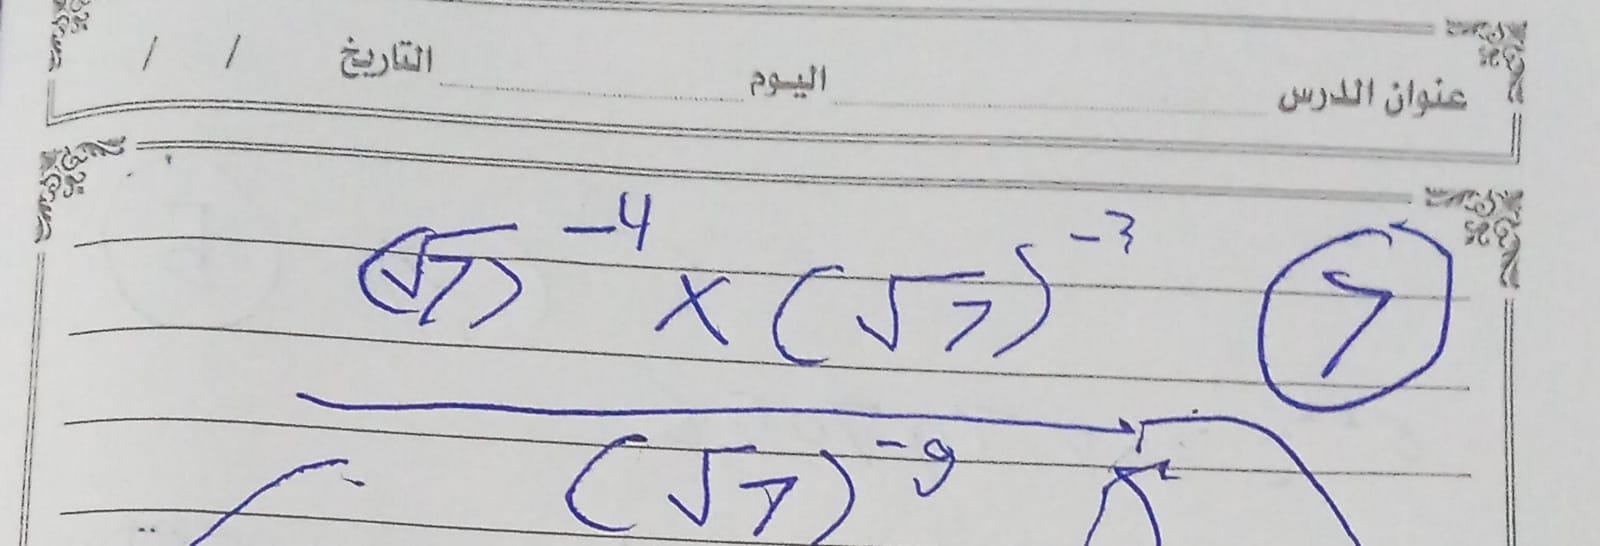 عنوان الدرس اليوم التاريخ / /
(√7)⁻⁴ × (√7)⁻³ 7
(√7)⁻⁹